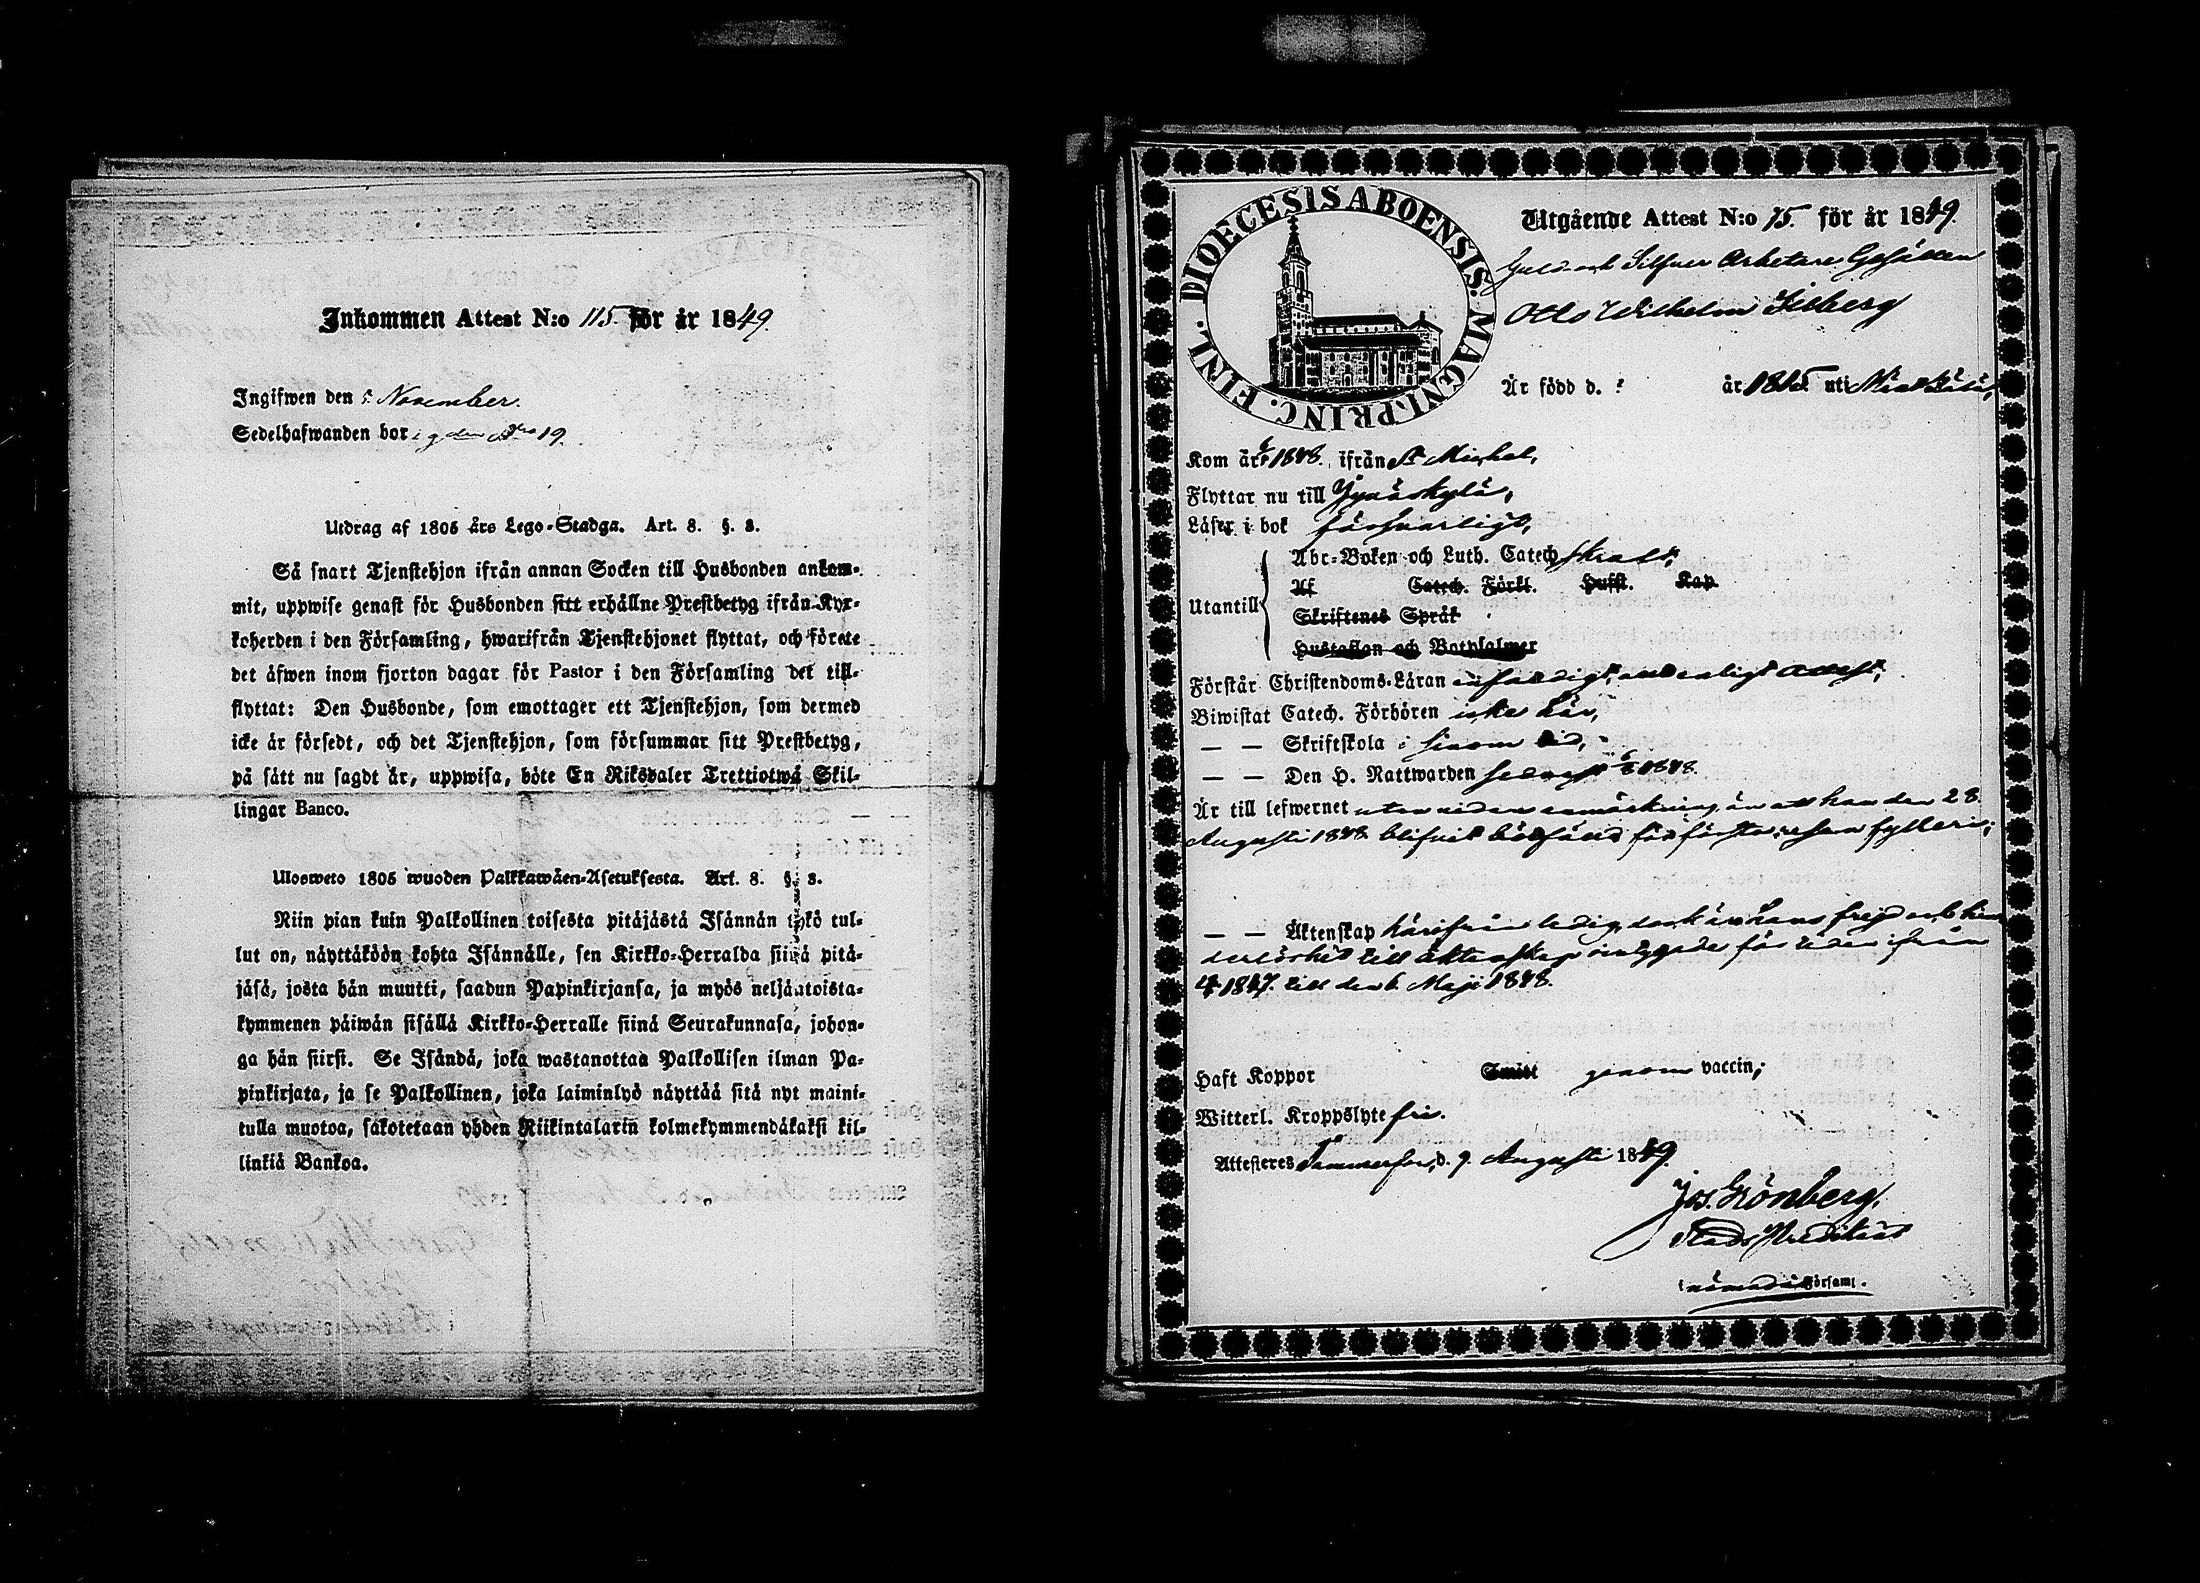 Inkommen Attest N:o 115. för år 1849.
Ingifwen den 5. November.
Sedelhafwanden bor i gården Nro 19.
Utdrag af 1805 års Lego-Stadga. Art. 8. §. 8.
Så snart Tjenstehjon ifrån annan Socken till Husbonden ankom-
mit, uppwise genast för Husbonden sitt erhållne Prestbetyg ifrån Kyr-
koherden i den Församling, hwarifrån Tjenstehjonet flyttat, och förete
det äfwen inom fjorton dagar för Pastor i den Församling det till-
flyttat: Den Husbonde, som emottager ett Tjenstehjon, som dermed
icke är försedt, och det Tjenstehjon, som försummar sitt Prestbetyg,
på sätt nu sagdt är, uppwisa, böte En Riksdaler Trettiotwå Skil-
lingar Banco.
Ulosweto 1805 wuoden Palkkawäen-Asetuksesta. Art. 8. §. 8.
Niin pian kuin Palkollinen toisesta pitäjästä Isännän tykö tul-
lut on, näyttäköön kohta Isännälle, sen Kirkko-Herralda siinä pitä-
jäsä, josta hän muutti, saadun Papinkirjansa, ja myös neljäntoista-
kymmenen päiwän sisällä Kirkko-Herralle siinä Seurakunnasa, johon-
ga hän siirsi. Se Isändä, joka wastanottaa Palkollisen ilman Pa-
pinkirjata, ja se Palkollinen, joka laiminlyö näyttää sitä nyt maini-
tulla muotoa, sakotetaan yhden Riikintalarin kolmekymmendäkaksi kil-
linkiä Bankoa.
DIOECESIS ABOENSIS. MAGNI. PRINC. FINL.
Utgående Attest N:o 75. för år 1849.
Guld och Silfver Arbetare Gesällen
Otto Wilhelm
Är född d. ? år 1815 uti
Kom år 1848. ifrån St Michel,
Flyttar nu till Jyväskylä,
Läser i bok försvarligt,
Utantill
Abc-Boken och Luth. Catech.
Af Catech. Förkl. Hufst. Kap.
Skriftenes Språk
Hustaflan och Botpsalmer
Förstår Christendoms-Läran enfaldigt, enligt attest;
Biwistat Catech. Förhören icke här,
— — Skriftskola i sinom tid,
— — Den H. Nattwarden sednast 1848.
Är till lefwernet utan vidare anmärkning, än att han den 28.
Augusti 1848 blifvit bötfäld för första resan fylleri;
— — Äktenskap härifrån ledig, dock är hans frejd och hin-
derlöshet till äktenskap för tiden ifrån
1847. till den 6. Maji 1848.
Haft Koppor Smitt genom vaccin;
Witterl. Kroppslyte fri.
Attesteres Tammerfors, d. 9. Augusti 1849.
Jos. Grönberg.
Stads Predikant
i nämnda Församl.